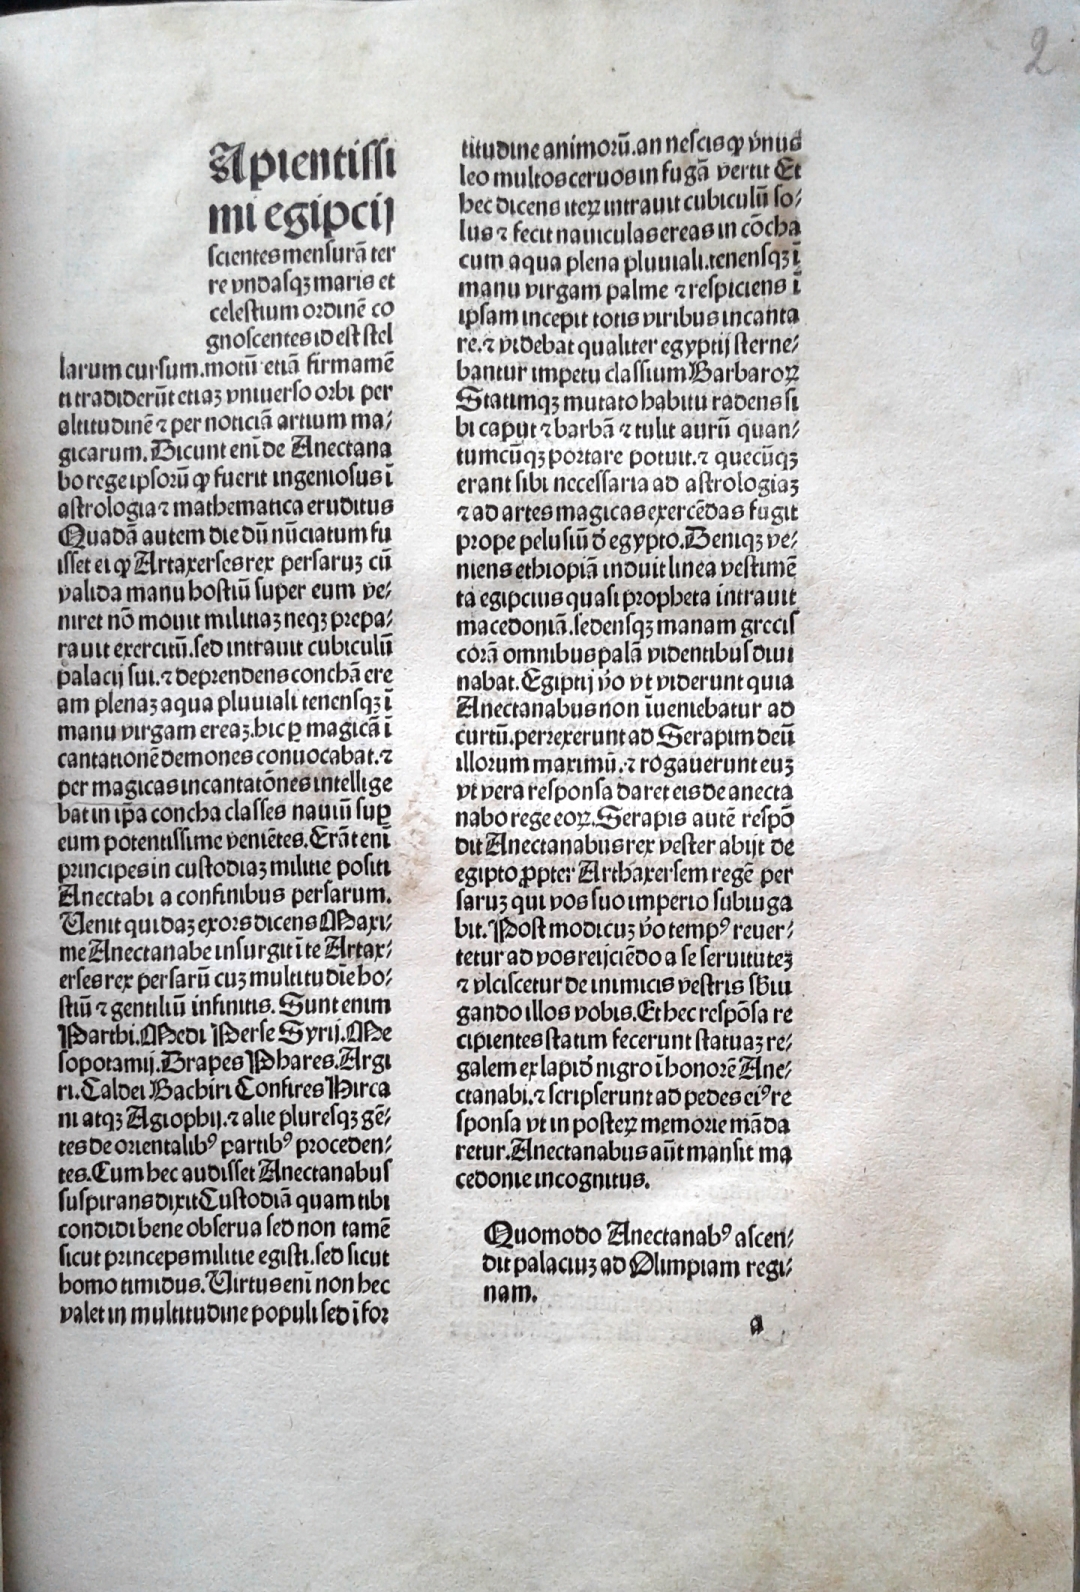 2
Apientissi
mi egipcij
scientes mensurā ter
re vndasqꝫ maris et
celestium ordinē co
gnoscentes id est stel
larum cursum.motū etiā firmamē
ti tradiderūt etiaꝫ vniuerso orbi per
altitudinē ⁊ per noticiā artium ma⸗
gicarum. Dicunt enī de Anectana
bo rege ipsorū ꝙ fuerit ingeniosus ī
astrologia ⁊ mathematica eruditus
Quadā autem die dū nūciatum fu
isset ei ꝙ Artaxerses rex persaruꝫ cū
valida manu hostiū super eum ve⸗
niret nō mouit militiaꝫ neqꝫ prepa⸗
rauit exercitū.sed intrauit cubiculū
palacij sui.⁊ deprendens conchā ere
am plenaꝫ aqua pluuiali tenensqꝫ ī
manu virgam ereaꝫ.hic ꝑ magicā ī
cantationē demones conuocabat.⁊
per magicas incantatōnes intellige
bat in ip̄a concha classes nauiū suꝑ
eum potentissime veniētes.Erāt enī
principes in custodiaꝫ militie positi
Anectabi a confinibus persarum.
Uenit quidaꝫ exors dicens Maxi⸗
me Anectanabe insurgit ī te Artax⸗
erses rex persarū cuꝫ multitudīe ho⸗
stiū ⁊ gentiliū infinitis. Sunt enim
Parthi.Medi Perse Syrij.Me
sopotamij.Drapes Phares.Argi
ri.Caldei Bachiri Confires Hirca
ni atqꝫ Agiophij.⁊ alie pluresqꝫ gē⸗
tes de orientalibꝰ partibꝰ proceden⸗
tes.Cum hec audisset Anectanabus
suspirans dixit Custodiā quam tibi
condidi bene obserua sed non tamē
sicut princeps militie egisti.sed sicut
homo timidus. Uirtus enī non hec
valet in multitudine populi sed ī for
titudine animorū.an nescis ꝙ vnus
leo multos ceruos in fugā vertit Et
hec dicens iteꝝ intrauit cubiculū so⸗
lus ⁊ fecit nauiculas ereas in cōcha
cum aqua plena pluuiali.tenensqꝫ ī
manu virgam palme ⁊ respiciens ī
ipsam incepit totis viribus incanta
re.⁊ videbat qualiter egyptij sterne⸗
bantur impetu classium Barbaroꝝ
Statimqꝫ mutato habitu radens si
bi caput ⁊ barbā ⁊ tulit aurū quan⸗
tumcūqꝫ portare potuit.⁊ quecūqꝫ
erant sibi necessaria ad astrologiaꝫ
⁊ ad artes magicas exercēdas fugit
prope pelusiū d̄ egypto.Deniqꝫ ve⸗
niens ethiopiā induit linea vestimē
ta egipcius quasi propheta intrauit
macedoniā.sedensqꝫ manam grecis
corā omnibus palā videntibus diui
nabat.Egiptij v̄o vt viderunt quia
Anectanabus non īueniebatur ad
curtū.perrexerunt ad Serapim deū
illorum maximū.⁊ rogauerunt euꝫ
vt vera responsa daret eis de anecta
nabo rege eoꝝ.Serapis autē respō
dit Anectanabus rex vester abijt de
egipto ꝓpter Arthaxersem regē per
saruꝫ qui vos suo imperio subiuga
bit.Post modicuꝫ v̄o tempꝰ reuer⸗
tetur ad vos reijciēdo a se seruituteꝫ
⁊ vlciscetur de inimicis vestris sb̄iu
gando illos vobis.Et hec respōsa re
cipientes statim fecerunt statuaꝫ re⸗
galem ex lapid̄ nigro ī honorē Ane⸗
ctanabi.⁊ scripserunt ad pedes eiꝰ re
sponsa vt in posteꝝ memorie māda
retur.Anectanabus aūt mansit ma
cedonie incognitus.
Quomodo Anectanabꝰ ascen⸗
dit palaciuꝫ ad Olimpiam regi⸗
nam.
a